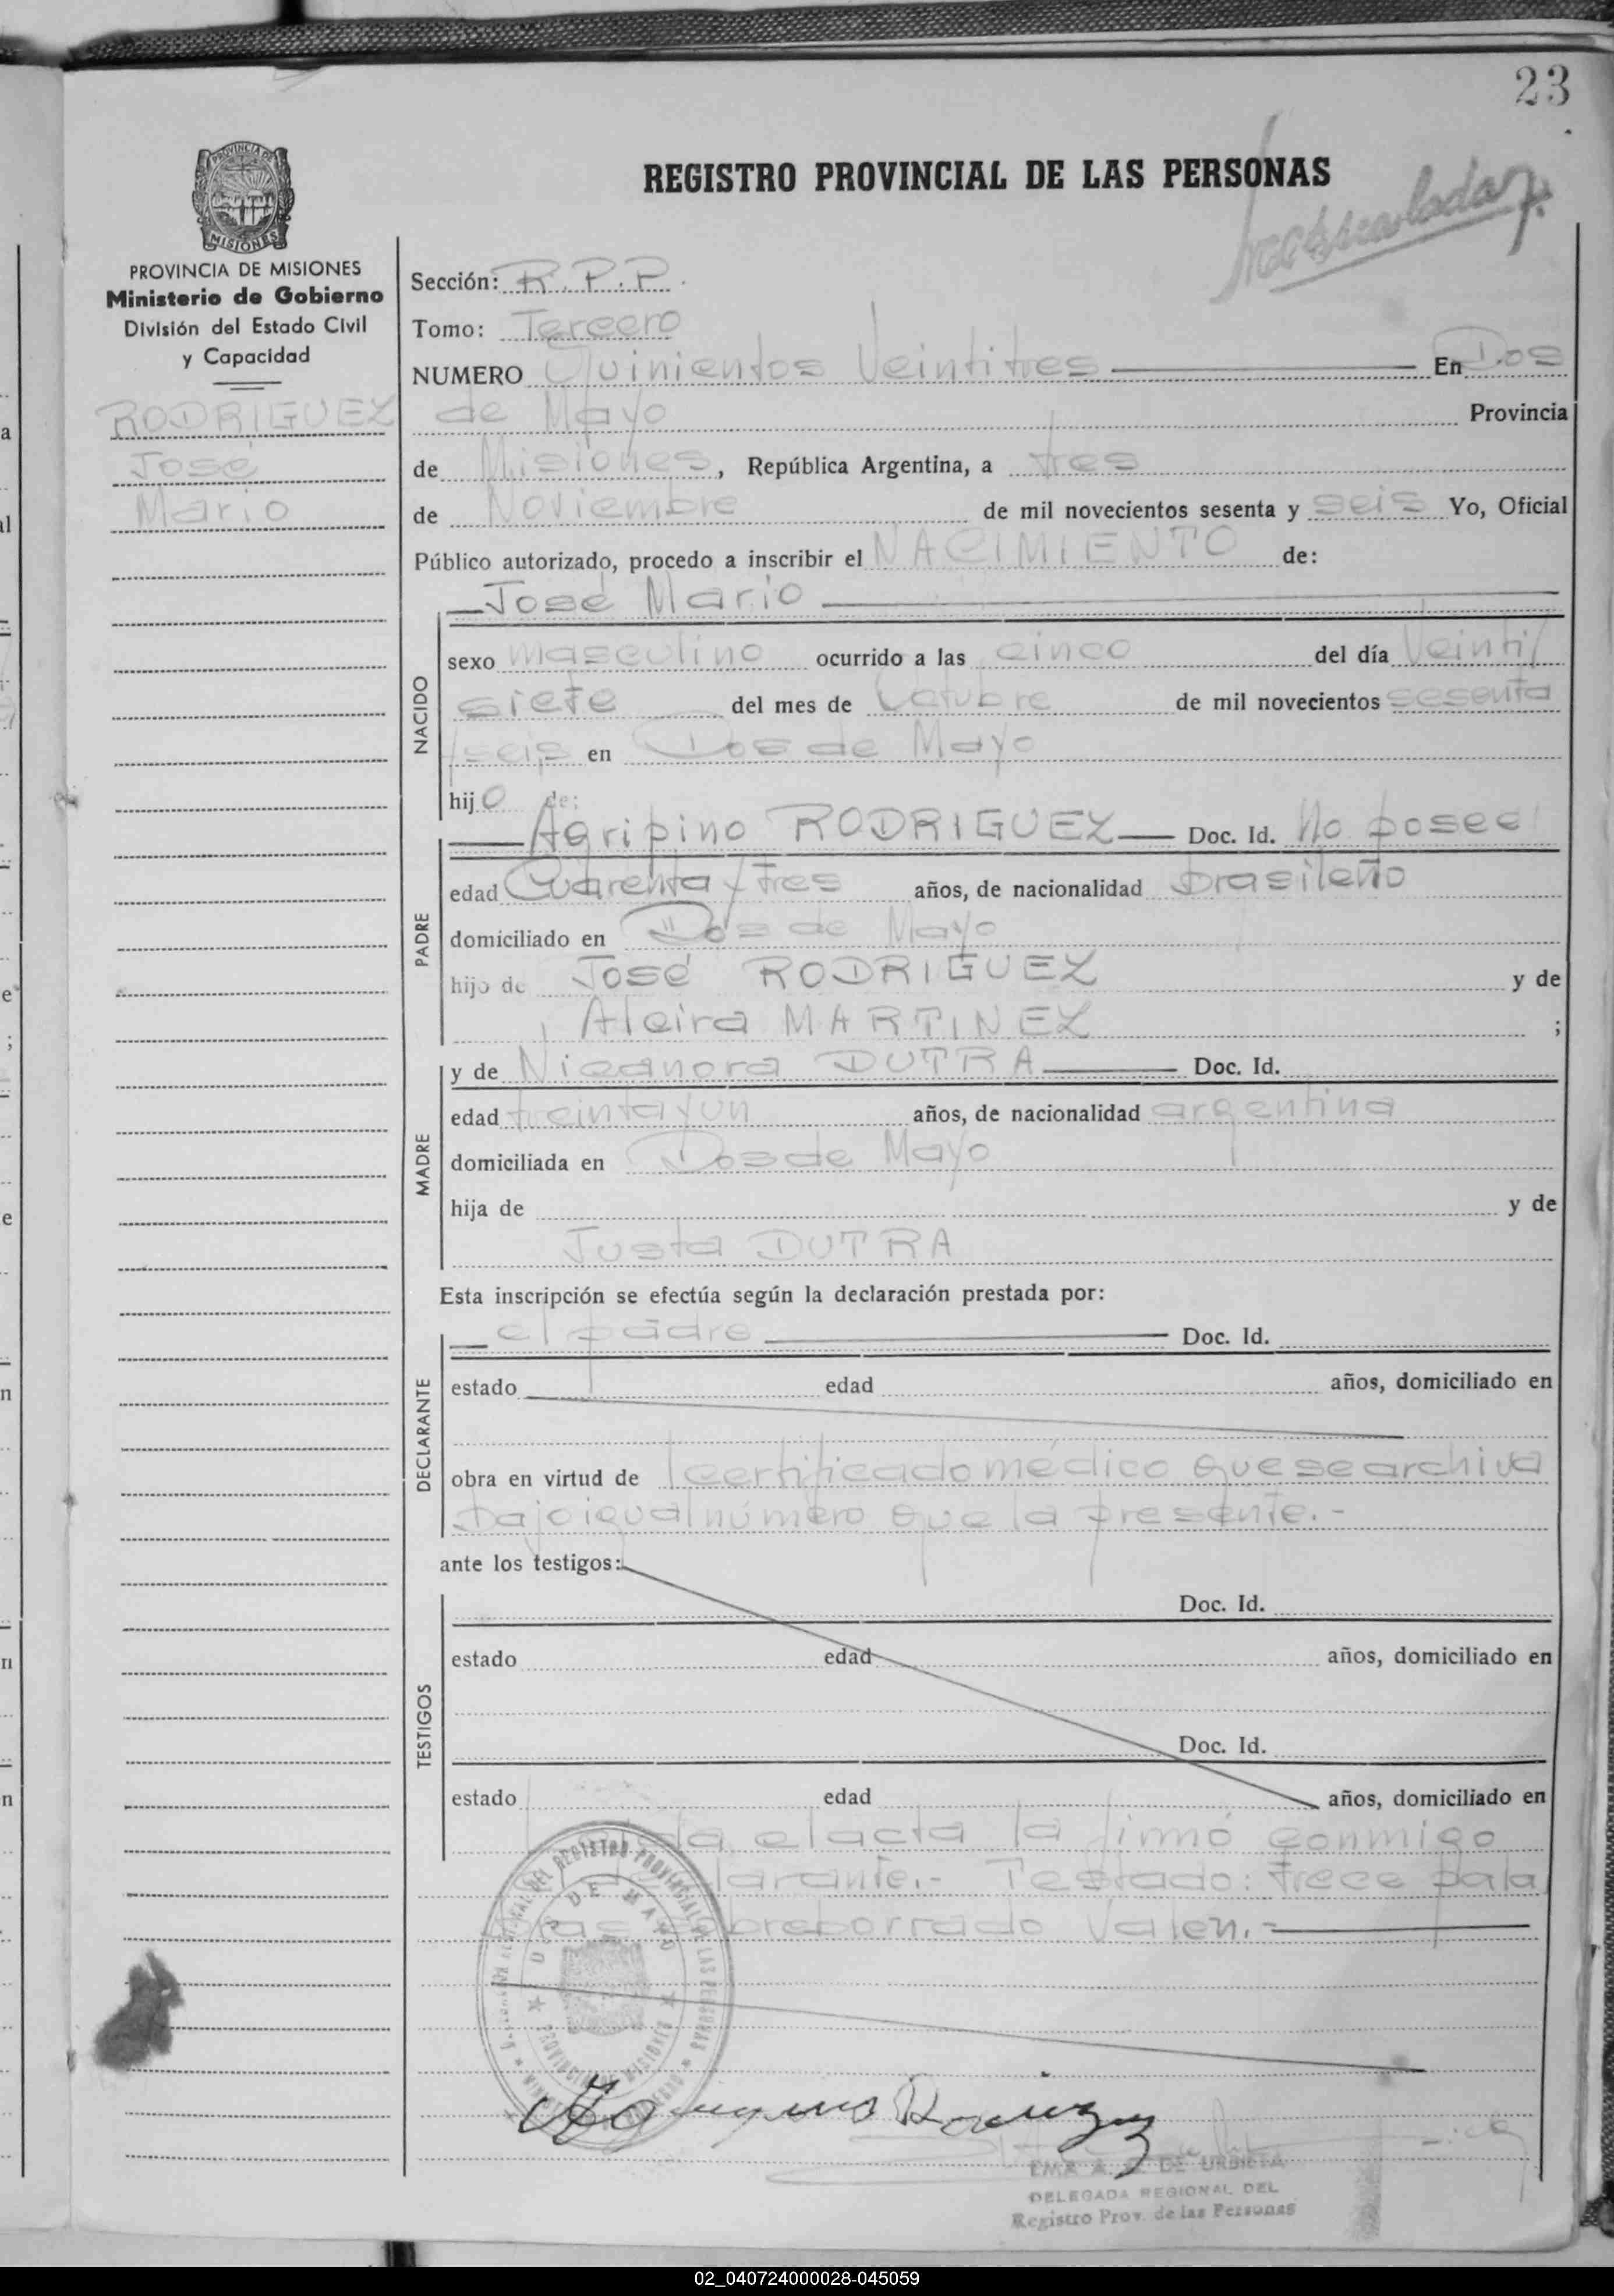 23
REGISTRO PROVINCIAL DE LAS PERSONAS
PROVINCIA DE
MISIONES
PROVINCIA DE MISIONES
Ministerio de Gobierno
División del Estado Civil
y Capacidad
RODRIGUEZ
José
Mario
Sección: R.P.P.
Tomo: Tercero
NUMERO Quinientos Veintitres En Dos
de Mayo Provincia
de Misiones, República Argentina, a tres
de Noviembre de mil novecientos sesenta y seis Yo, Oficial
Público autorizado, procedo a inscribir el NACIMIENTO de:
José Mario
NACIDO
sexo masculino ocurrido a las cinco del día Veinti/
siete del mes de Octubre de mil novecientos sesenta
/seis en Dos de Mayo
hijo de:
PADRE
Agripino RODRIGUEZ Doc. Id. No posee
edad Cuarenta y tres años, de nacionalidad brasileño
domiciliado en Dos de Mayo
hijo de José RODRIGUEZ y de
Alcira MARTINEZ ;
MADRE
y de Nicanora DUTRA Doc. Id.
edad treinta y un años, de nacionalidad argentina
domiciliada en Dos de Mayo
hija de y de
Justa DUTRA
Esta inscripción se efectúa según la declaración prestada por:
DECLARANTE
el padre Doc. Id.
estado edad años, domiciliado en
obra en virtud de certificado médico que se archiva
bajo igual número que la presente.-
ante los testigos:
TESTIGOS
Doc. Id.
estado edad años, domiciliado en
Doc. Id.
estado edad años, domiciliado en
el acta la firmó conmigo
Testado: trece pala
sobreborrado Valen.-
DOS DE MAYO
DEL REGISTRO PROVINCIAL DE LAS PERSONAS
PROVINCIA DE MISIONES
EMA A. DE URBIETA
DELEGADA REGIONAL DEL
Registro Prov. de las Personas
02_040724000028-045059